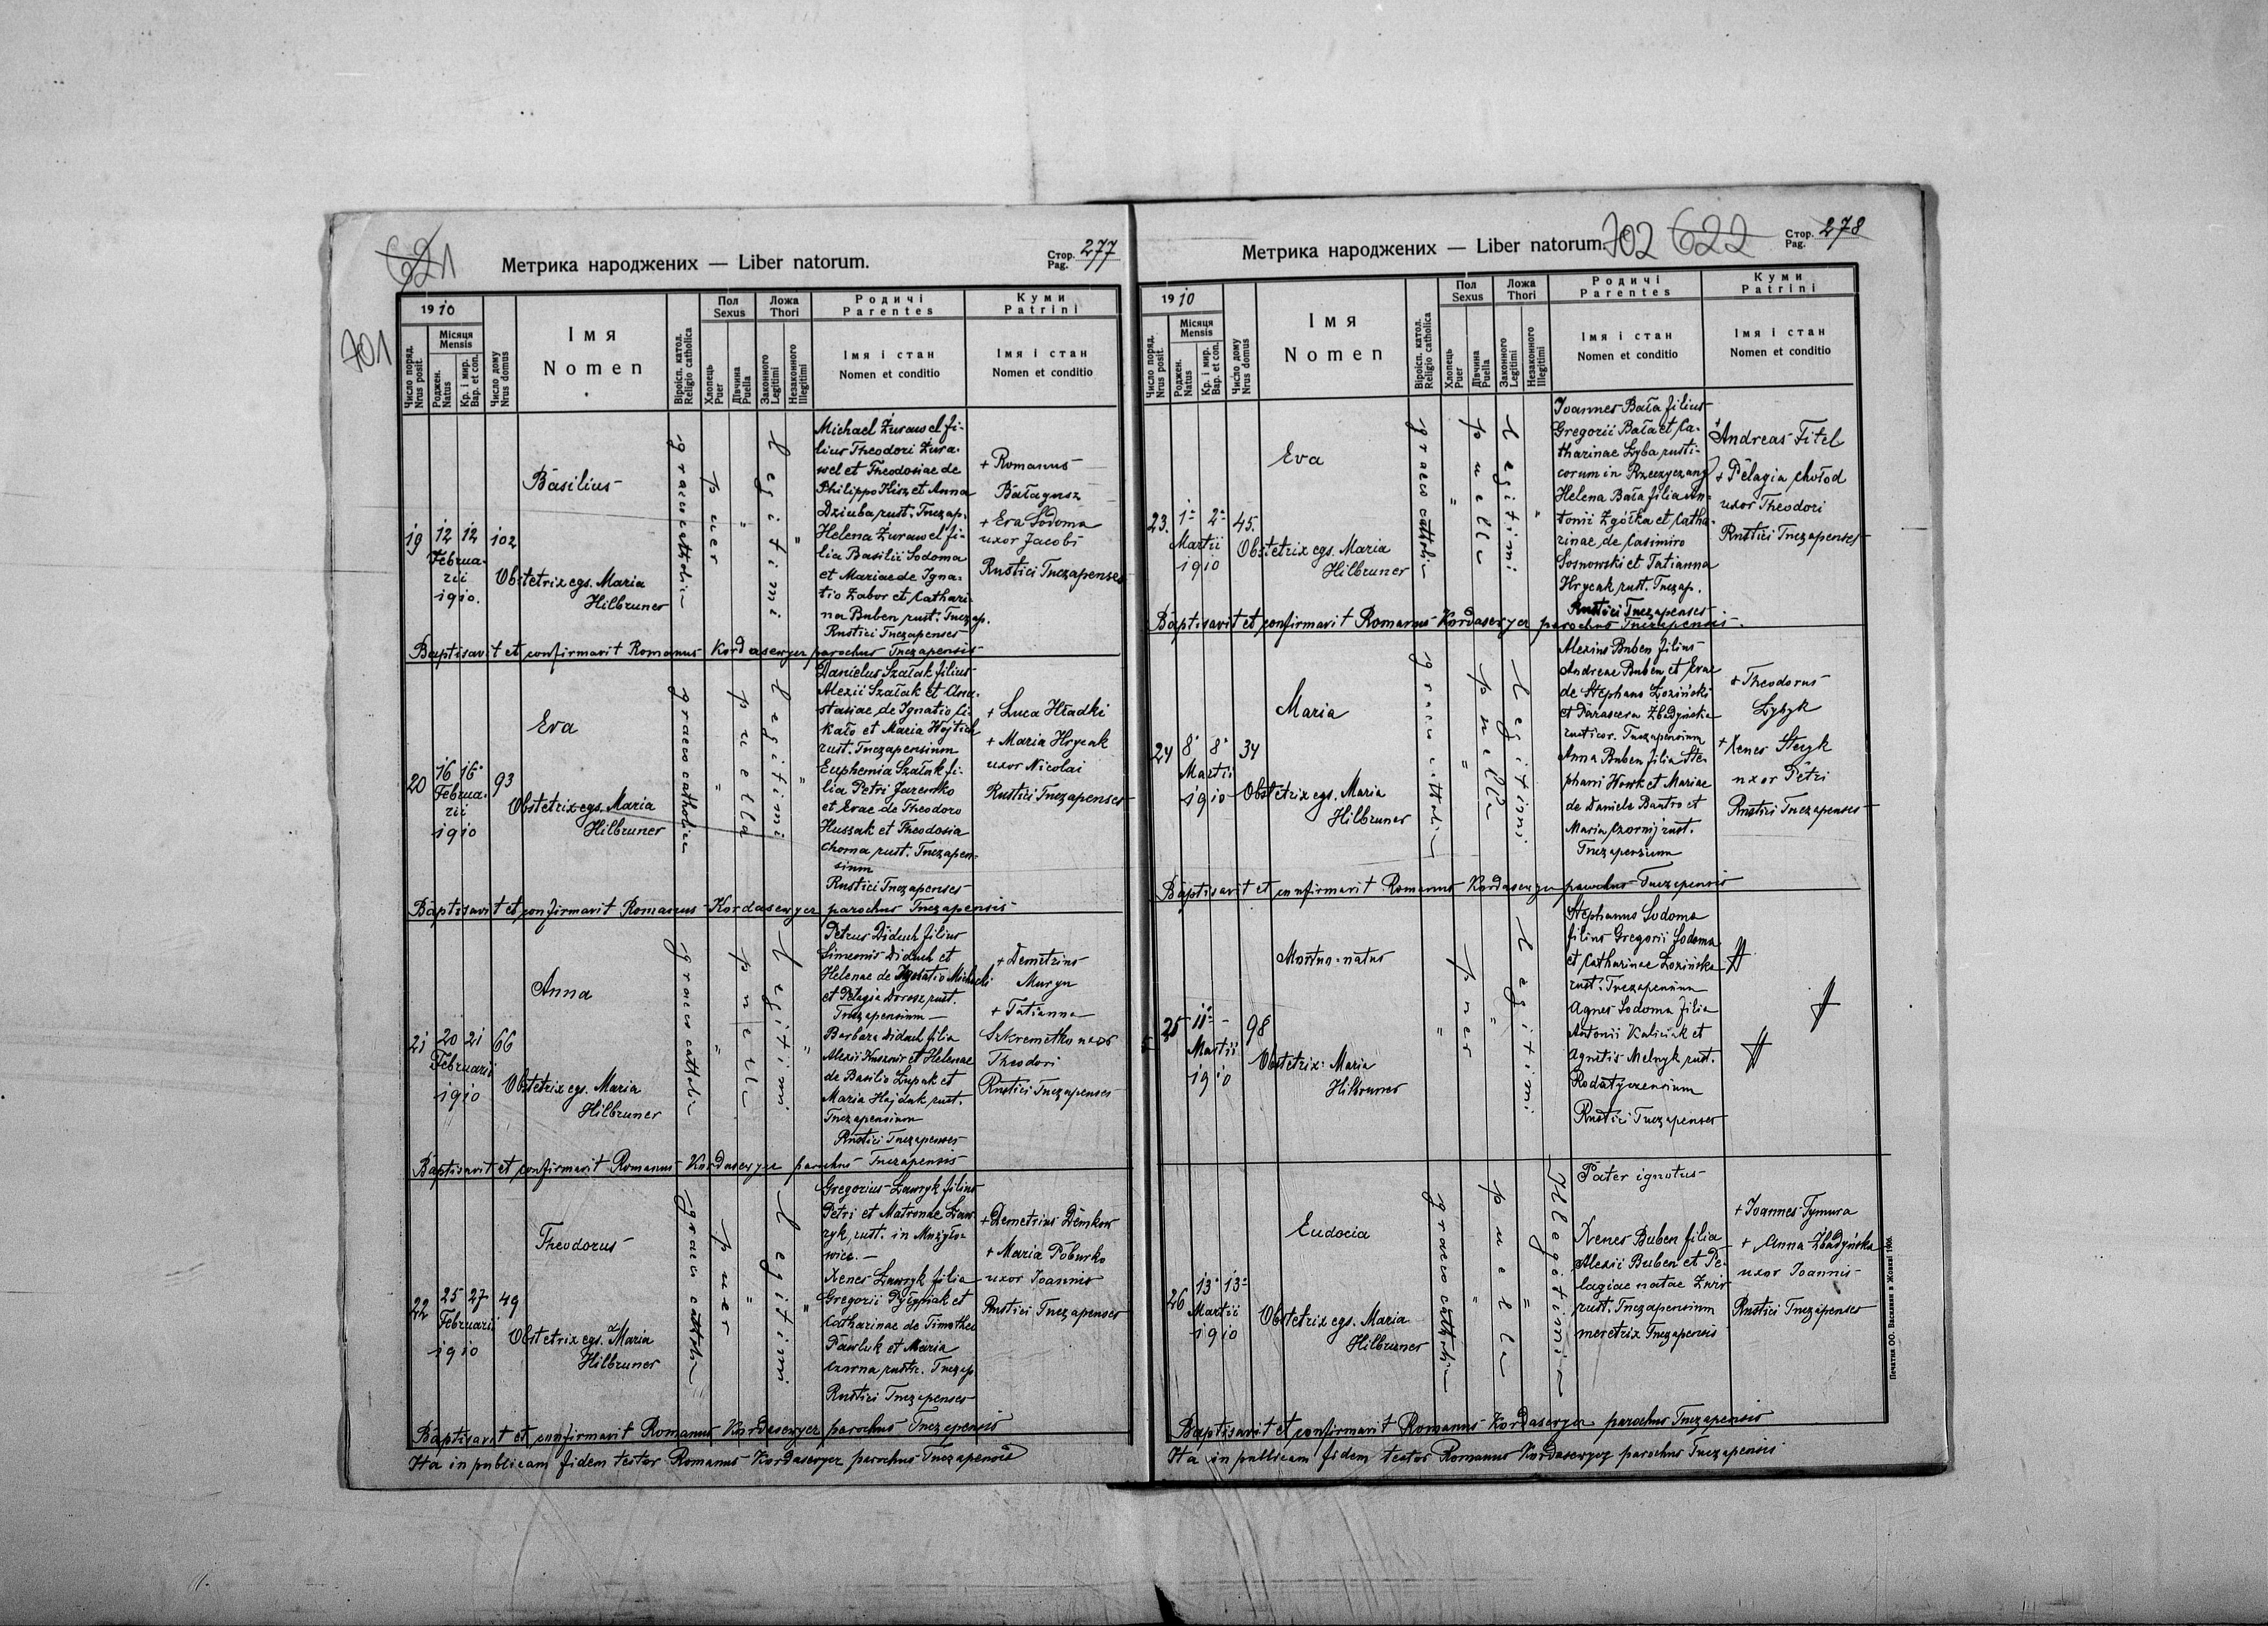 621
701
Метрика народжених — Liber natorum.
Стор. Pag. 277
1910
Місяця
Mensis
Число поряд.
Nrus posit.
Роджен.
Natus
Кр. і мир.
Bap. et con.
Число дому
Nrus domus
Імя
Nomen
Віроісп. катол.
Religio catholica
Пол
Sexus
Хлопець
Puer
Дівчина
Puella
Ложа
Thori
Законного
Legitimi
Незаконного
Illegitimi
Родичі
Parentes
Імя і стан
Nomen et conditio
Куми
Patrini
Імя і стан
Nomen et conditio
19
12 12
Februa-
rii
1910.
102
Basilius
Obstetrix egs. Maria
Hilbruner
graeco catholica
puer
"
legitimi
"
Michael Żurawel fi-
lius Theodori Żura-
wel et Theodosiae de
Philippo Kisz et Anna
Dziuba rust. Tuczap.
Helena Żurawel fi-
lia Basilii Sodoma
et Mariae de Igna-
tio Zabor et Cathari-
na Buben rust. Tuczap.
Rustici Tuczapenses
+ Romanus
Bałagusz
+ Eva Sodoma
uxor Jacobi
Rustici Tuczapenses
Baptisavit et confirmavit Romanus Kordasewycz parochus Tuczapensis
20
16 16
Februa-
rii
1910
93
Eva
Obstetrix egs. Maria
Hilbruner
graeco catholica
"
puella
legitimi
"
Danielus Szałak filius
Alexii Szałak et Ana-
stasiae de Ignatio Ci-
kało et Maria Wojtich
rust. Tuczapensium
Euphemia Szałak fi-
lia Petri Jaremko
et Evae de Theodoro
Hussak et Theodosia
Choma rust. Tuczapen-
sium
Rustici Tuczapenses
+ Luca Hładki
+ Maria Hrycak
uxor Nicolai
Rustici Tuczapenses
Baptisavit et confirmavit Romanus Kordasewycz parochus Tuczapensis
21
20 21
Februarii
1910
66
Anna
Obstetrix egs. Maria
Hilbruner
graeco catholica
"
puella
legitimi
"
Petrus Diduch filius
Simeonis Diduch et
Helenae de Ignatio
et Pelagia Dorosz rust.
Tuczapensium —
Barbara Diduch filia
Alexii Kusznir et Helenae
de Basilio Łupak et
Maria Hajduk rust.
Tuczapensium
Rustici Tuczapenses
+ Demetrius
Muryn
+ Tatianna
Szkremetko uxor
Theodori
Rustici Tuczapenses
Baptisavit et confirmavit Romanus Kordasewycz parochus Tuczapensis
22
25 27
Februarii
1910
49
Theodorus
Obstetrix egs. Maria
Hilbruner
graeco cathol.
puer
"
legitimi
"
Gregorius Ławryk filius
Petri et Matronae Ław-
ryk, rust. in Mużyło-
wice. —
Xenes Ławryk filia
Gregorii et
Catharinae de Timotheo
Pawluk et Maria
Czorna rustic. Tuczap
Rustici Tuczapenses
+ Demetrius Demkow
+ Maria Poburko
uxor Joannis
Rustici Tuczapenses
Baptisavit et confirmavit Romanus Kordasewycz parochus Tuczapensis
Ita in publicam fidem testor Romanus Kordasewycz parochus Tuczapensis
Метрика народжених — Liber natorum.
702 622
Стор. Pag. 278
1910
Місяця
Mensis
Число поряд.
Nrus posit.
Роджен.
Natus
Кр. і мир.
Bap. et con.
Число дому
Nrus domus
Імя
Nomen
Віроісп. катол.
Religio catholica
Пол
Sexus
Хлопець
Puer
Дівчина
Puella
Ложа
Thori
Законного
Legitimi
Незаконного
Illegitimi
Родичі
Parentes
Імя і стан
Nomen et conditio
Куми
Patrini
Імя і стан
Nomen et conditio
23.
1 2
Martii
1910
45.
Eva
Obstetrix egs. Maria
Hilbruner
graeco catholica
"
puella
legitimi
"
Joannes Bała filius
Gregorii Bała et Ca-
tharinae Łyba rusti-
corum in
Helena Bała filia An-
tonii Zgórka et Catha-
rinae de Casimiro
Sosnowski et Tatianna
Hrycak rust. Tuczap.
Rustici Tuczapenses
+ Andreas Fitel
+ Pelagia Chołod
uxor Theodori
Rustici Tuczapenses
Baptisavit et confirmavit Romanus Kordasewycz parochus Tuczapensis.
24
8 8
Martii
1910
34
Maria
Obstetrix egs. Maria
Hilbruner
graeco catholica
"
puella
legitimi
Alexius Buben filius
Andreae Buben et Evae
de Stephano Łoziński
et Parascera Zbadyńska
rusticor. Tuczapensium
Anna Buben filia Ste-
phani Howk et Mariae
de Daniele Bautro et
Maria Czornij rust.
Tuczapensium
+ Theodorus
Łyzyk
+ Xenes Stecyk
uxor Petri
Rustici Tuczapenses
Baptisavit et confirmavit Romanus Kordasewycz parochus Tuczapensis
25
11 -
Martii
1910
98
Mortuo-natus
Obstetrix Maria
Hilbruner
puer
"
legitimi
"
Stephanus Sodoma
filius Gregorii Sodoma
et Catharinae Łozińska
rust. Tuczapensium
Agnes Sodoma filia
Antonii Kaliciak et
Agnetis Melnyk rust.
Rodatyczensium
Rustici Tuczapenses
26
13 13
Martii
1910
Eudocia
Obstetrix egs. Maria
Hilbruner
graeco catholica
"
puella
"
Illegitimi
Pater ignotus
Xenes Buben filia
Alexii Buben et Pe-
lagiae natae Zwir
rust. Tuczapensium
meretrix Tuczapensis
+ Joannes Tymura
+ Anna Zbadyńska
uxor Joannis
Rustici Tuczapenses
Baptisavit et confirmavit Romanus Kordasewycz parochus Tuczapensis
Ita in publicam fidem testor Romanus Kordasewycz parochus Tuczapensis
Печатня ОО. Василиян в Жовкві 1906.